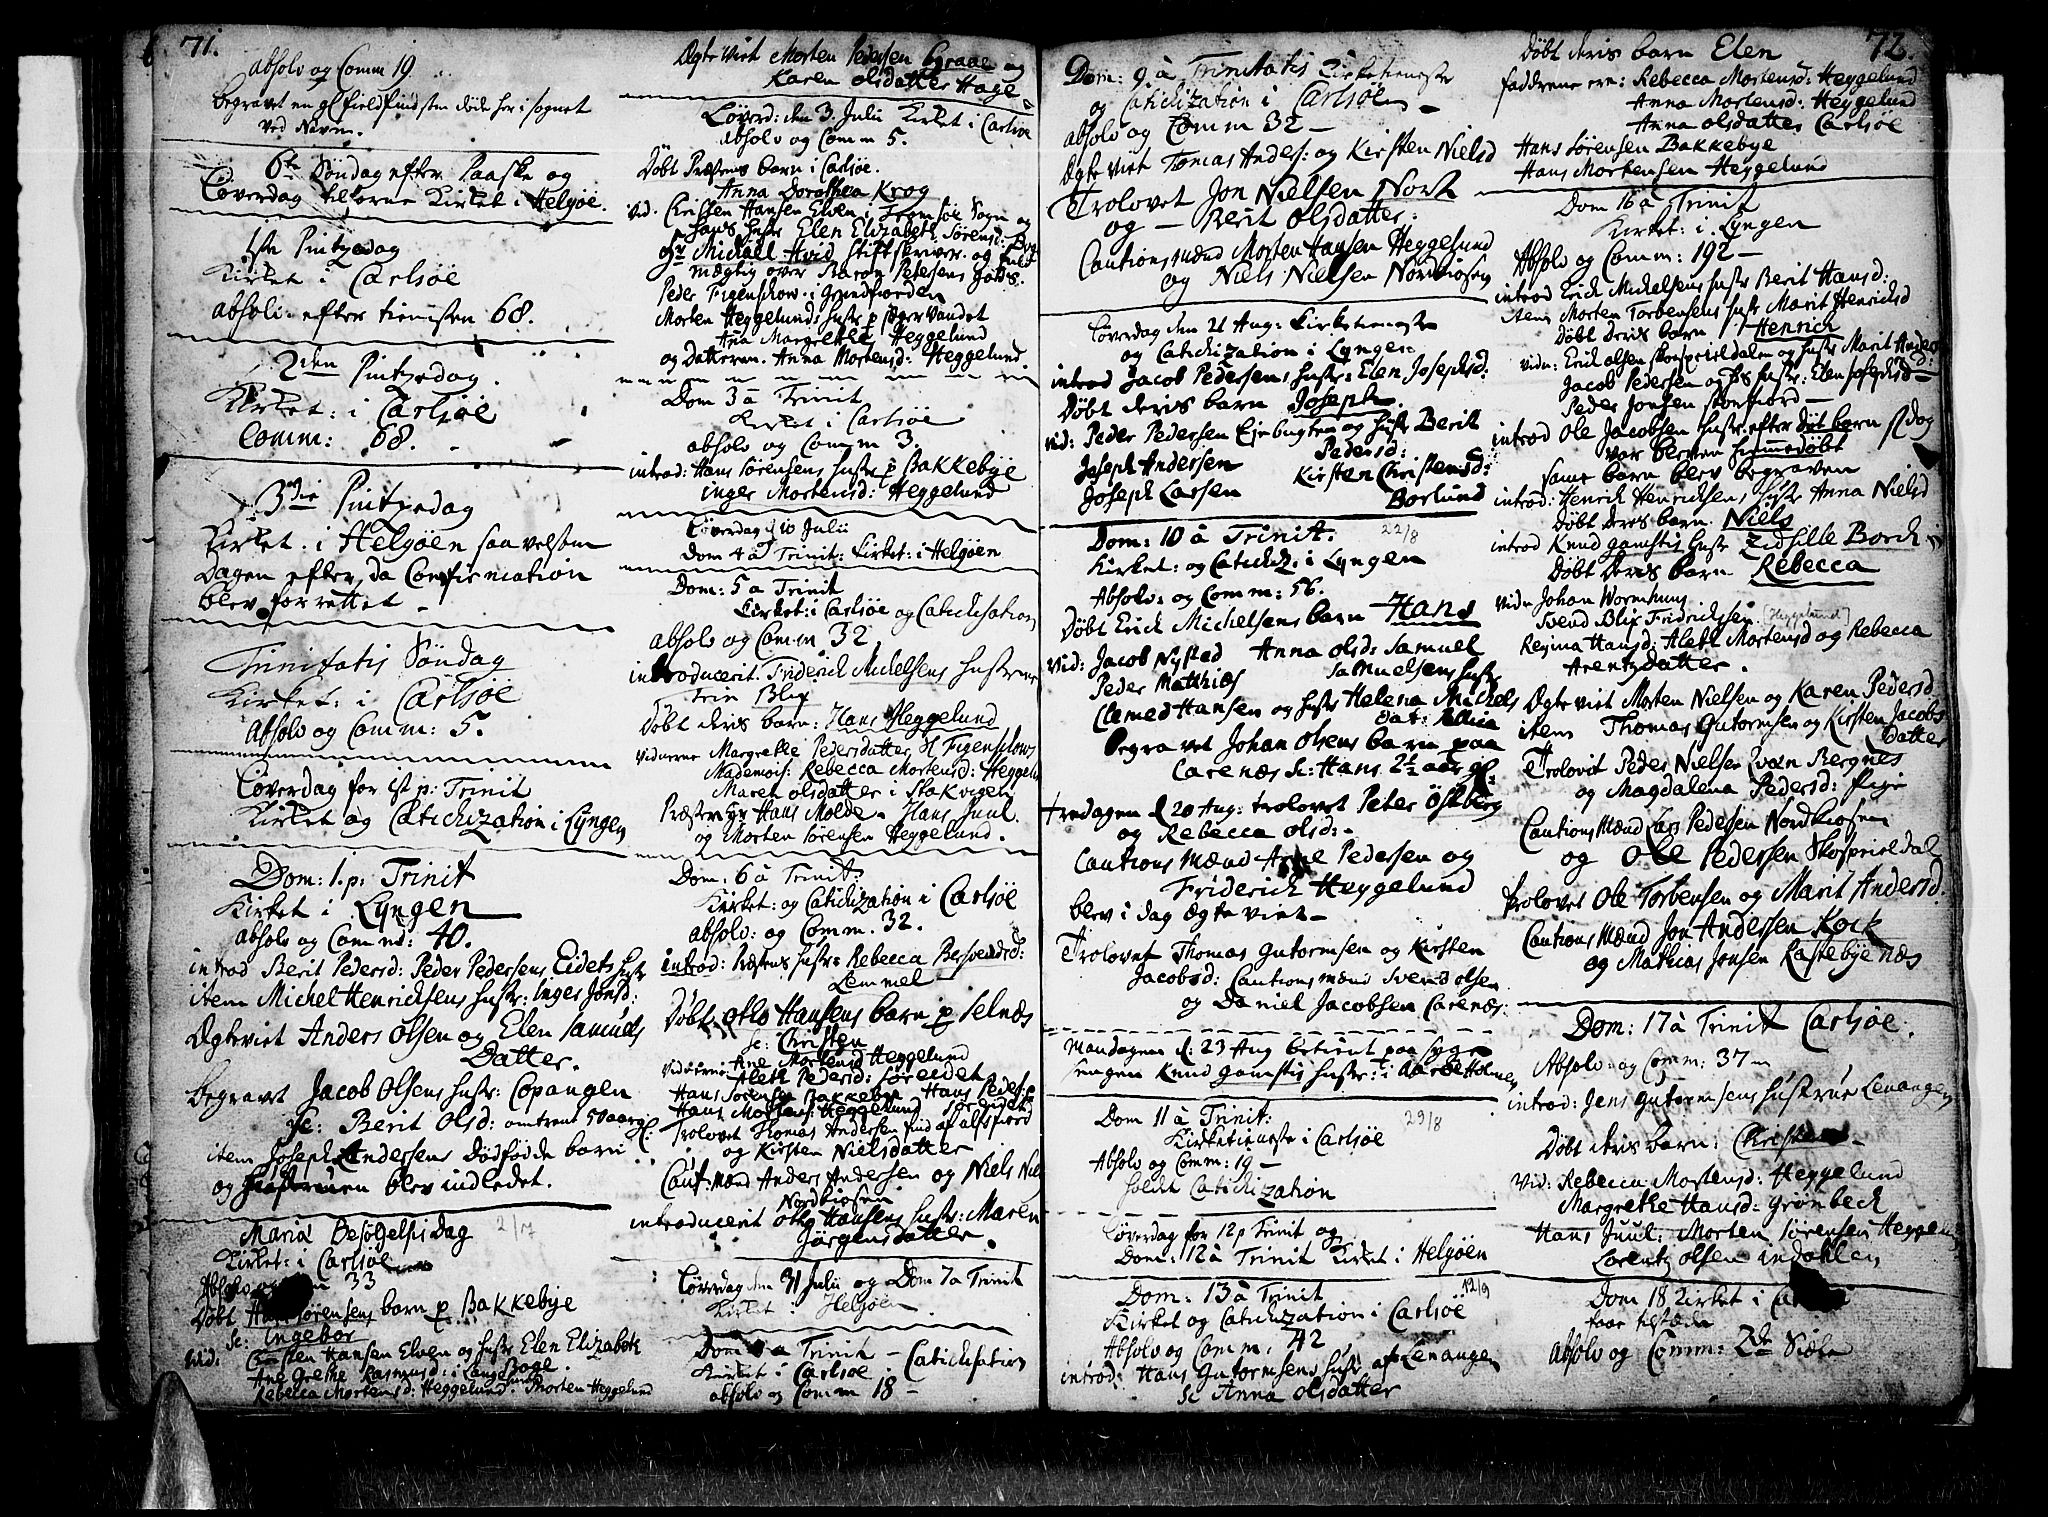 71.
Absolv og Comm 19.
Begravet en gl fieldfind som døde her i sognet
ved Navn.
6te Søndag efter Paaske og
Løverdag tilforne Kirket i Helgøe.
1ste Pintzedag
Kirket i Carlsøe
absolv. efter tienisten 68.
2den Pintzedag.
Kirket: i Carlsøe
Comm: 68.
3die Pintzedag
Kirket: i Helgøen saavelsom
Dagen efter, da Confirmation
blev forrettet.
Trinitatis Søndag
Kirket: i Carlsøe
Absolv og Comm: 5.
Løverdag for 1st p: Trinit
Kirket og Catichization i Lyngen
Dom: 1. p: Trinit
Kirket i Lyngen
absolv og Comm: 40.
introd Berit Pedersd: Peder Pedersens Eidets hustr
item Michel Henrichsens hustr: Inger Jonsd:
Ægteviet Anders Olsen og Elen Samuels
Datter.
begravet Jacob Olsens hustr: Copangen
sc: Berit Olsd: omtrent 50 aar gl:
item Joseph Andersens dødfødde barn
og hustruen blev indledet.
Mariæ Besøgelses Dag 2/7
Kirket: i Carlsøe
Absolv og 33
Døbt Hans Sørensens barn p Bakkebye
sc: Ingebor
vid: Christen Hansen Elven og hustr Elen Elizabeth
Ane Grethe Rasmusd: i Lange
Rebecca Mortensd: Heggelund. Morten Heggelund
Ægteviet Morten Pedersen Graae og
Karen Olsdatter Hage
Løverd: den 3. Julii Kirket i Carlsøe
absolv og Comm 5.
Døbt Præstens barn i Carlsøe.
Anna Dorothea Krog
vid. Christen Hansen Elven i Tromsøe Sogn og
hans hustr Elen Elizabeth Sørensd:
Sr Michael Hvid Stiftskriver og fuld
mægtig over Baron Petersens Gods.
Peder Figenschow i Grundfiorden
Morten Heggelunds hustr p Vandet
Ana Margrethe Heggelund
og Datteren. Anna Mortensd: Heggelund.
Dom 3 à Trinit
Kirket i Carlsøe
absolv og Comm 3.
introd: Hans Sørensens hustr p Bakkebye
Inger Mortensd: Heggelund
Løverdag d 10 Julii
Dom 4 à Trinit: Kirket: i Helgøen
Dom: 5 a Trinit
Kirket: i Carlsøe og Catichisation
absolv og Comm 32
introducerit. Friderich Michelsens hustrue
Trin Blix
Døbt deris barn: Hans Heggelund
vidnerne Margrethe Pedersdatter Sl Figenschows
Mademois: Rebecca Mortensd: Heggelu
Maret Olsdatter i Stakvigen
Præsten Hr Hans Molde. Hans Juul.
og Morten Sørensen Heggelund.
Dom: 6 à Trinit:
Kirket: og Catichization i Carlsøe
absolv: og Comm. 32.
introd: Præstens hustr: Rebecca
Lemmel
Døbt. Otho Hansens barn p Selnæs
sc: Christen
vidnerne: Ane Mortensd Heggelund
Aleth Pedersd: Søreidet
Hans Sørensen Bakkebye Hans Peders
Hans Mortens: Heggelund Søreidet
Trolovet Thomas Andersen find af Alfsfiord
og Kirsten Nielsdatter
Caut: Mænd Anders Andersen og Niels Niel
Nordkiosen
introducerit Otho Hansens hustr: Maren
Jørgensdatter.
Løverdag den 31 Julii og Dom 7 a Trinit
Kirket i Helgøen
Dom 8 a Trinit – Catichisation
Kirket i Carlsøe
absolv og Comm 18 –
Dom: 9 à Trinitatis Kirketieneste
og Catichization i Carlsøen –
absolv og Comm 32 –
Ægteviet Tomas Anders: og Kirsten Nielsd
Trolovet Jon Nielsen Nork
og – Berit Olsdatter:
Cautions mænd Morten Hansen Heggelund
og Niels Nielsen Nordkiosen
Løverdag den 21 Aug: Kirketieneste
og Catichization i Lyngen
introd Jacob Pedersens hustr: Elen Josephsd:
Døbt deris barn Joseph.
vid: Peder Pedersen Ejebugten og hustr Berit
Pedersd:
Joseph Andersen Kirsten Christensd:
Joseph Larsen Borlund
Dom: 10 à Trinit. 22/8
Kirket: og Catichiz: i Lyngen
Absolv: og Comm: 56.
Døbt Erick Michelsens barn Hans
vid: Jacob Nysted Anna Olsd: Samuel
Peder Matthiæs Samuelsens hustr
Clemed Hansen og hustr Helena Michels
dat:
Begravet Johan Olsens barn paa
Carenæs sc: Hans 2½ aar gl:
fredagen d 20 Aug: trolovet Peter Östberg
og Rebecca Olsd:
Cautions Mænd Arne Pedersen og
Friderich Heggelund
blev i dag ægteviet –
Trolovet Thomas Gutormsen og Kirsten
Jacobsd: Cautionsmænd Svend Olsen
og Daniel Jacobsen Carenæs:
Mandagen d: 23 Aug betient paa syge
sengen Knud Gamstis hustr: i Aarøe Holmen
Dom 11 à Trinit: 29/8
Kirketieneste i Carlsøe
Absolv og Comm: 19 –
holdt Catichization
Løverdag for 12 p Trinit og
Dom: 12 à Trinit Kirket i Helgøen
Dom: 13 à Trinit 12/9
Kirket og Catichization i Carlsøe
Absolv og Comm: 42
introd: Hans Gutormsens hustr af Lenangen
sc Anna Olsdatter
72.
Døbt deris barn Elen
faddrene ere: Rebecca Mortensd: Heggelund
Anna Mortensd: Heggelund
Anna Olsdatter Carlsøe
Hans Sørensen Bakkebye
Hans Mortensen Heggelund
Dom 16 à Trinit
Kirket: i Lyngen
Absolv og Comm: 192 –
introd Erick Michelsens hustr Berit Hansd:
item Morten Torbensens hustr Marit Henricksd
Døbt deris barn Henrich
vidn: Erick Olsen Skospriseldalen og hustr Marit Anders
d:
Jacob Pedersen og hs hustr: Elen Josephsd
Peder Jonsen Storfiord –
introd Ole Jacobsen hustr. efter døt barn
var bleven hiemmedøbt
samt barn blev begraven
introd: Henrich Henrichsens hustr Anna Nielsd
Døbt deris barn. Niels
introd Knud Gamstis hustr Zidsille Borch
Døbt deris barn Rebecca
vidn Johan Wormhuus
Svend Blix Fridrichsen [Heggelund]
Regina Hansd: Aleth Mortensd og Rebecca
Arentzdatter.
Ægteviet Morten Nielsen og Karen Pedersd
item Thomas Gutormsen og Kirsten Jacobs
Datter
Trolovit Peder Nielsen Qvæn Bergnes
og Magdalena Pedersd: Pige
Cautions Mænd Lars Pedersen Nordkiosen
og Ole Pedersen Skospriseldal
Trolovet Ole Torbensen og Marit Andersd:
Cautions Mænd Jon Andersen Kock
og Mathias Jonsen Rastebye næs
Dom: 17 à Trinit Carlsøe.
Absolv: og Comm: 37
introd: Jens Gutormsens hustrue Lenangen
Døbt deris barn: Christen
vid: Rebecca Mortensd: Heggelund
Margrethe Hansd: Grønbeck
Hans Juul: Morten Sørensen Heggelu
Lorentz Olsen
Dom 18 Kirket i
faar tilstæde
Absolv og Comm: 2de Siæle